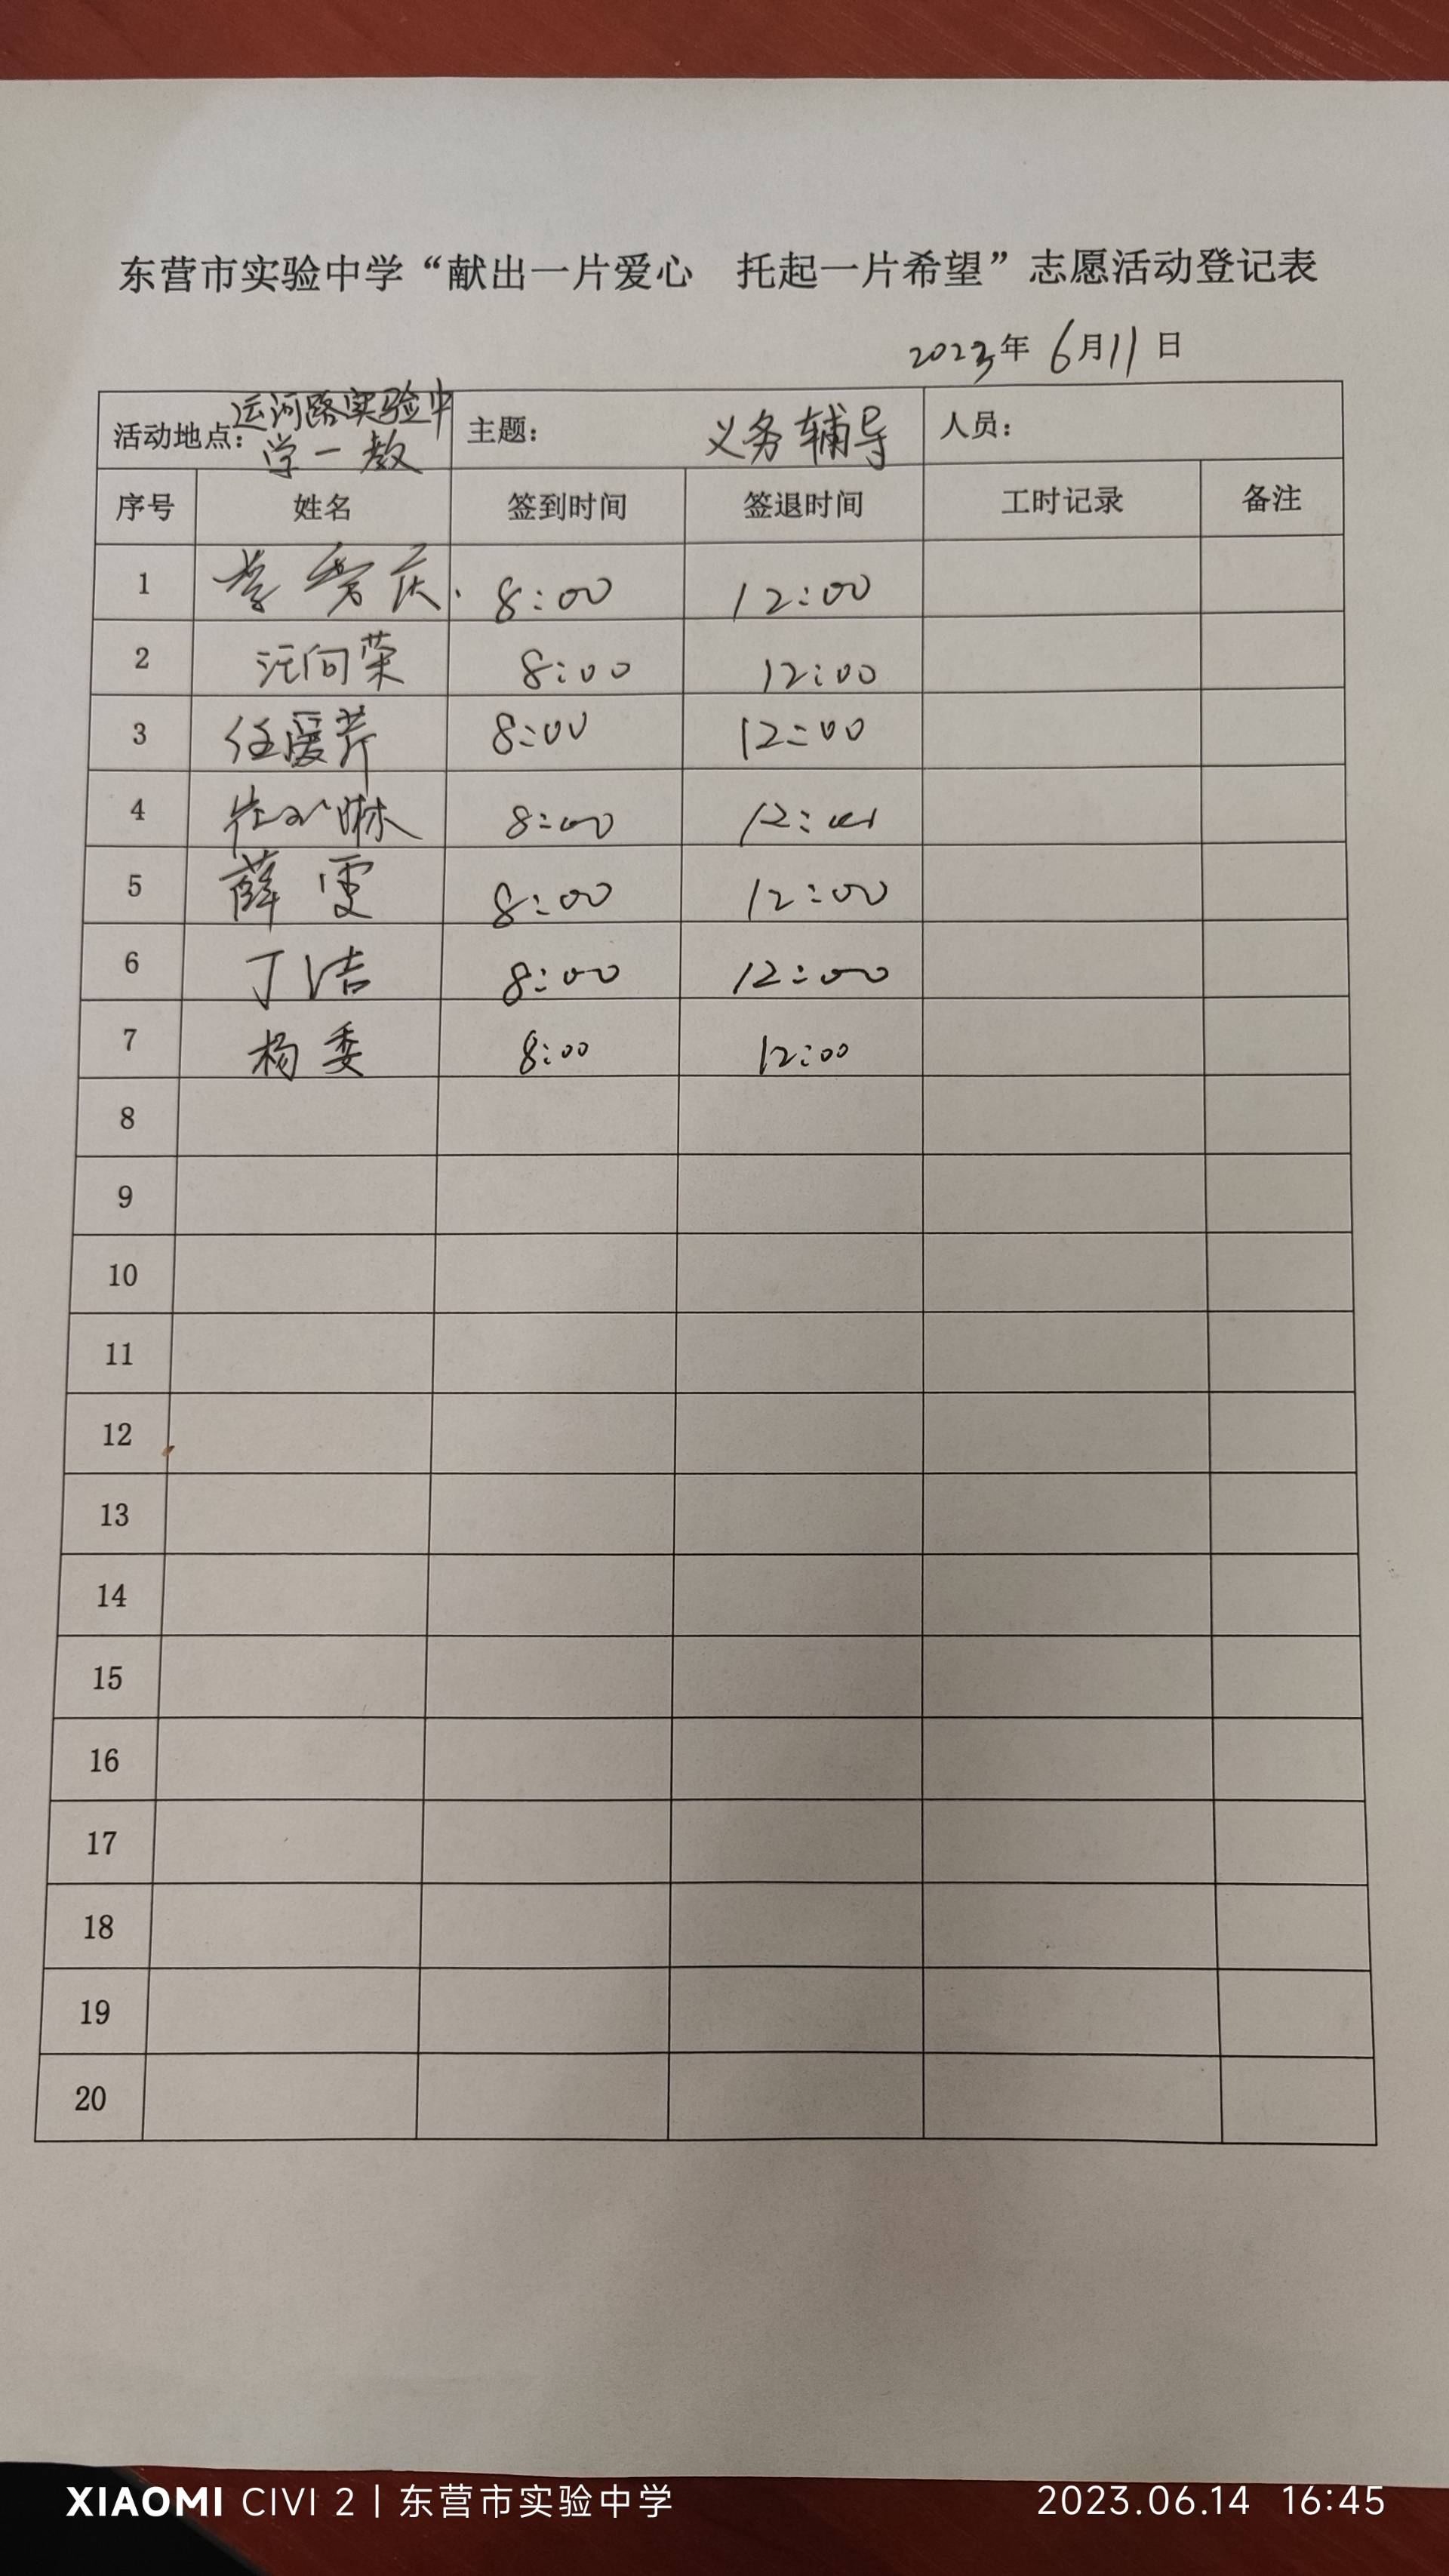 东营市实验中学“献出一片爱心 托起一片希望”志愿活动登记表
2023年 6月11日
活动地点：运河路实验中学一教 主题： 义务辅导 人员：
序号 姓名 签到时间 签退时间 工时记录 备注
1 8:00 12:00
2 汪向荣 8:00 12:00
3 任爱芹 8:00 12:00
4 8:00 12:00
5 薛雯 8:00 12:00
6 丁洁 8:00 12:00
7 杨委 8:00 12:00
8
9
10
11
12
13
14
15
16
17
18
19
20
XIAOMI CIVI 2 | 东营市实验中学 2023.06.14 16:45